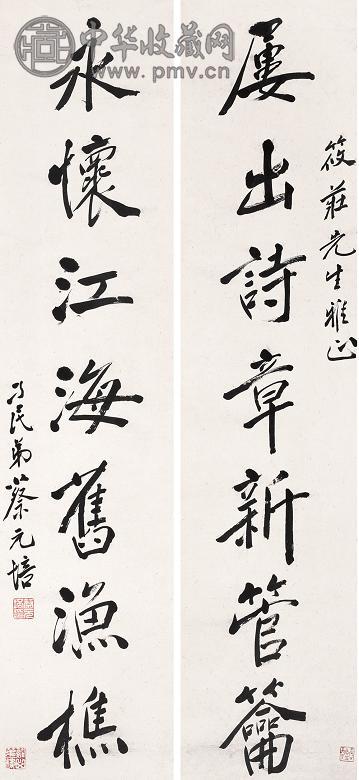 中华收藏网
www.pmv.cn
筱莊先生雅正
屢出詩章新管籥
永懷江海舊漁樵
孑民弟蔡元培